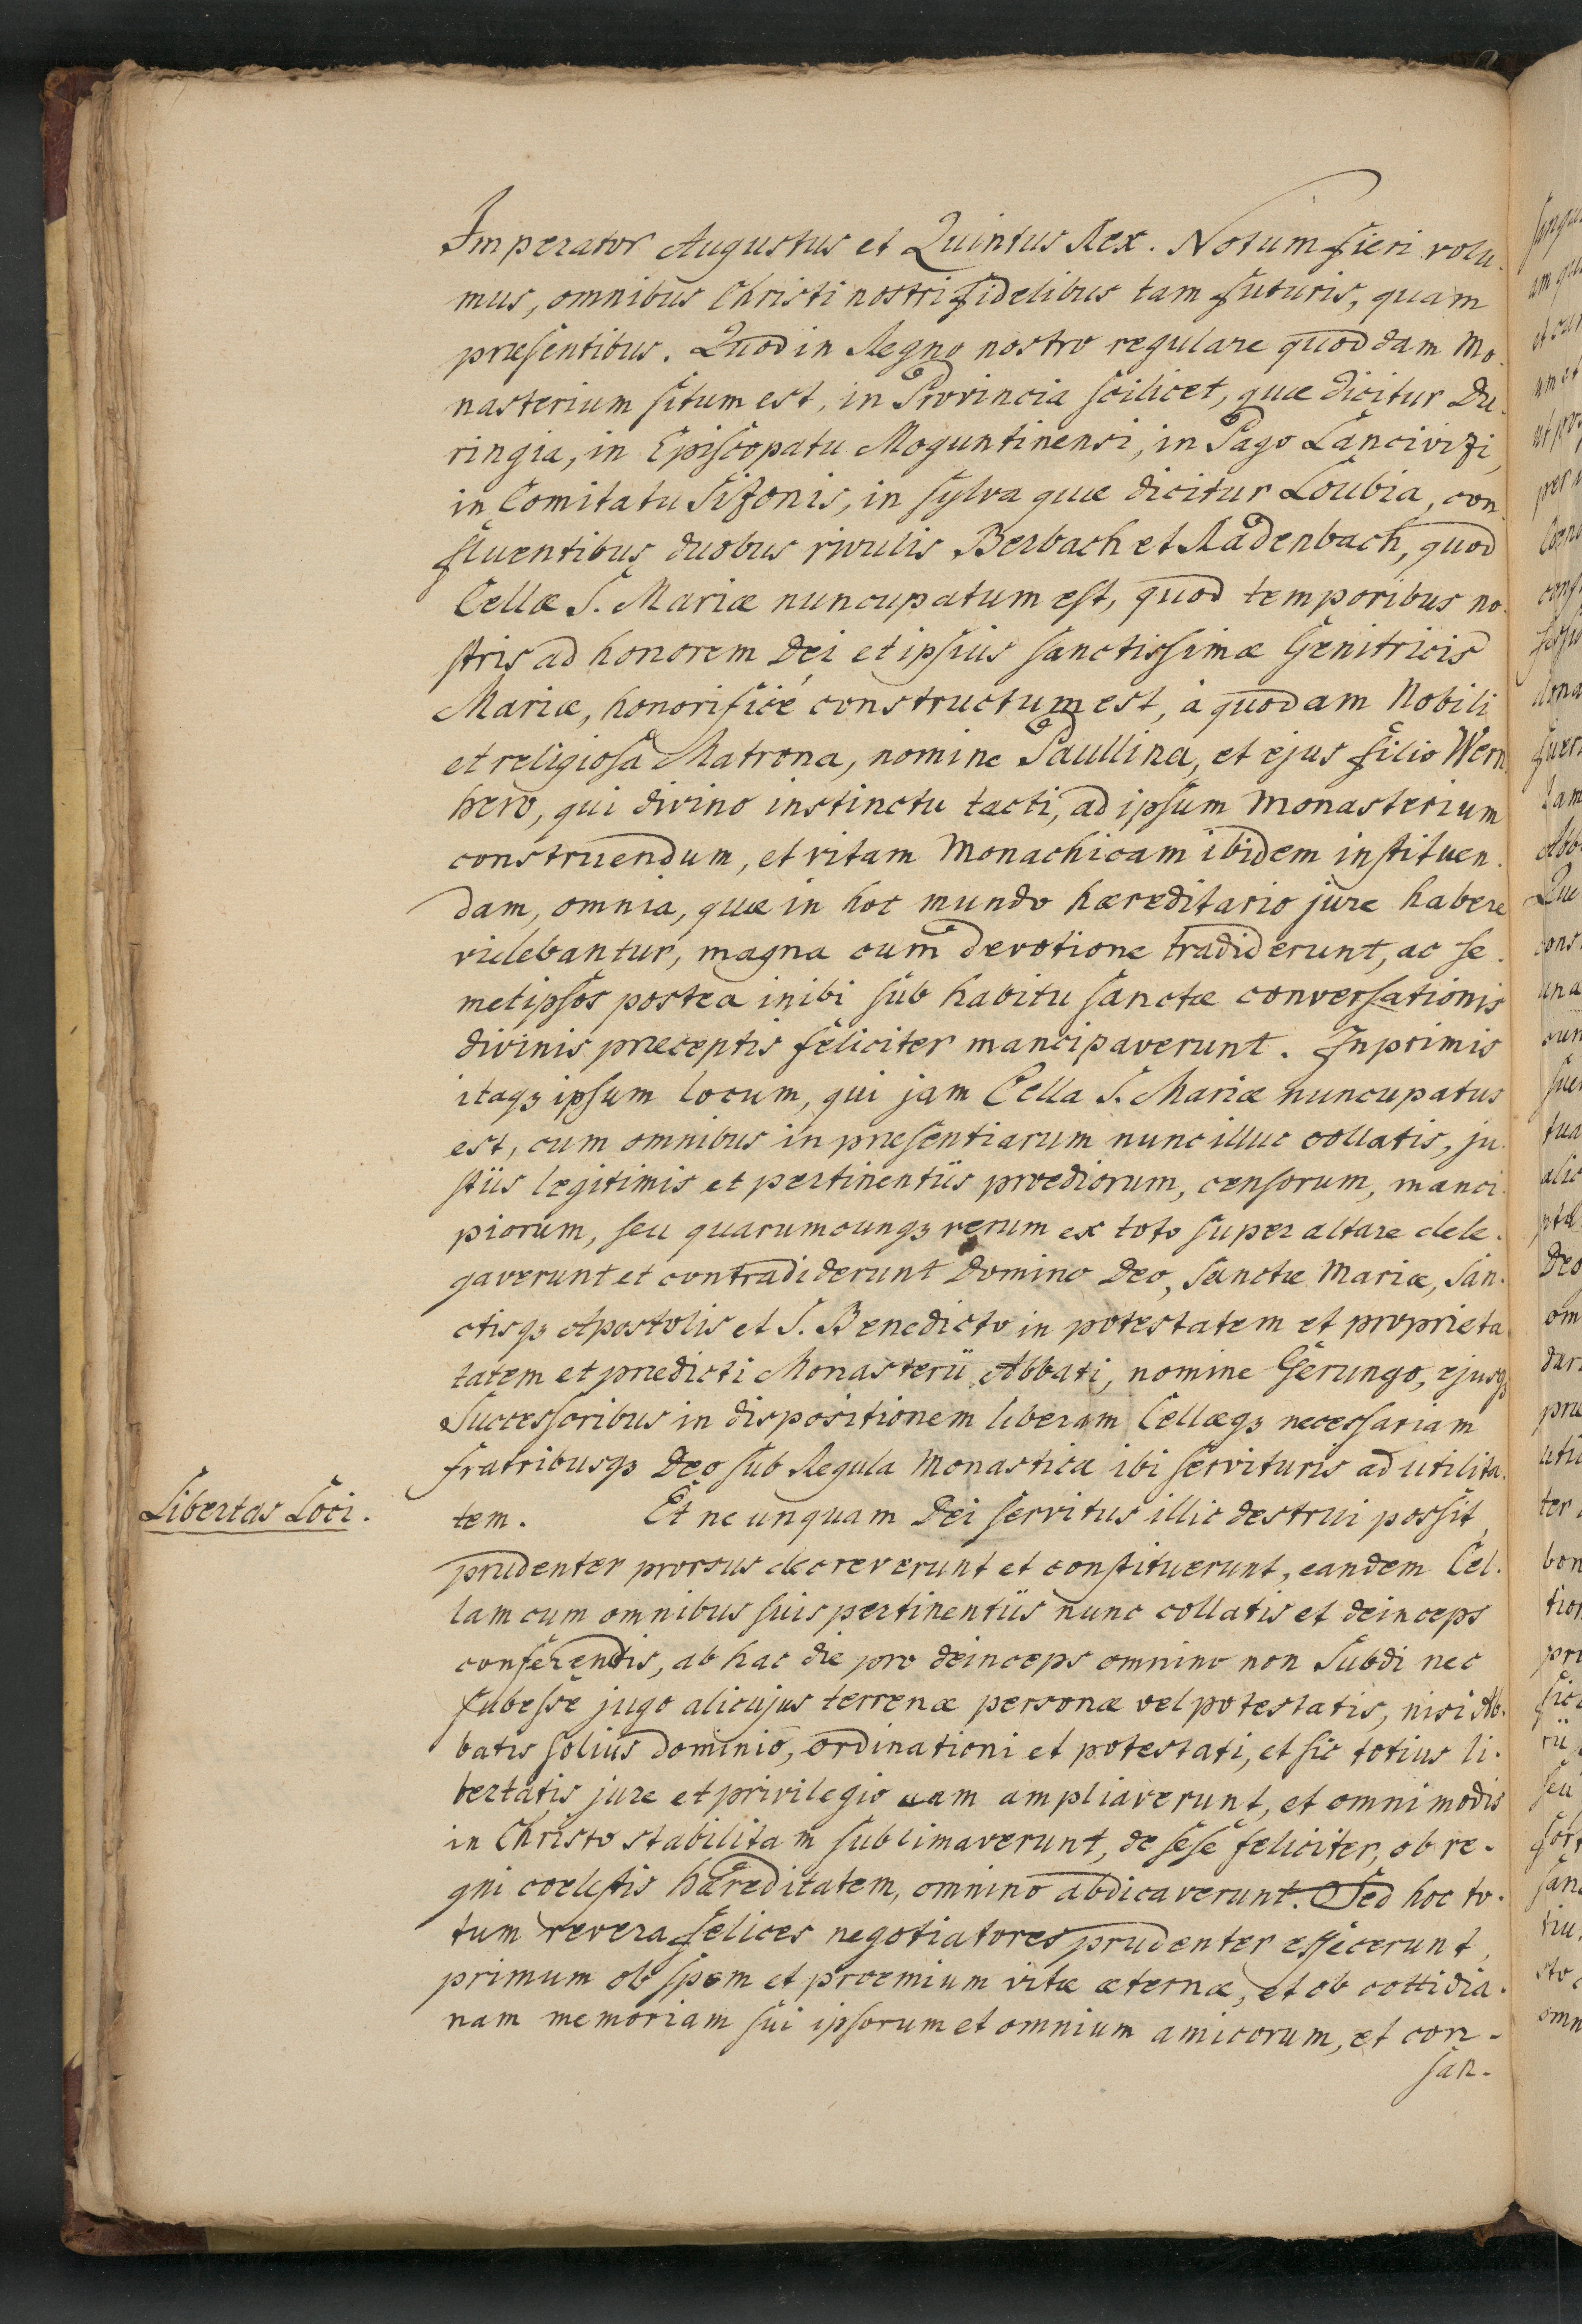 Imperator Augustus et Quintus Rex. Notum fieri volu-
mus, omnibus Christi nostri fidelibus tam futuris, quam
præsentibus. Quod in Regno nostro regulare quoddam Mo-
nasterium situm est, in Provincia scilicet, quæ dicitur Du-
ringia, in Episcopatu Moguntinensi, in Pago Lancivizi,
in Comitatu Sizonis, in sylva quæ dicitur Loubia, con-
fluentibus duobus rivulis Berbach et Radenbach, quod
Cellæ S. Mariæ nuncupatum est, quod temporibus no-
stris ad honorem Dei et ipsius sanctissimæ Genitricis
Mariæ, honorificé constructum est, à quodam Nobili
et religiosa Matrona, nomine Paullina, et ejus filio Wern-
hero, qui divino instinctu tacti, ad ipsum Monasterium
construendum, et vitam Monachicam ibidem instituen-
dam, omnia, quæ in hoc mundo hæreditario jure habere
videbantur, magna cum devotione tradiderunt, ac se-
metipsos postea inibi sub habitu sanctæ conversationis
divinis præceptis feliciter mancipaverunt. Inprimis
itaqꝫ ipsum locum, qui jam Cella S. Mariæ nuncupatus
est, cum omnibus in præsentiarum nunc illuc collatis, ju-
stiis legitimis et pertinentiis prœdiorum, censorum, manci-
piorum, seu quarumcunqꝫ rerum ex toto super altare dele-
gaverunt et contradiderunt Domino Deo, Sanctæ Mariæ, San-
ctisqꝫ Apostolis et S. Benedicto in potestatem et proprieta
tatem et prædicti Monasterii Abbati, nomine Gerungo, ejusqꝫ
Successoribus in dispositionem liberam Cellæqꝫ necessariam
fratribusqꝫ Deo sub Regula Monastica ibi servituris ad utilita-
Libertas Loci. tem. Et ne unquam Dei servitus illic destrui possit,
prudenter prorsus decreverunt et constituerunt, eandem Cel-
lam cum omnibus suis pertinentiis nunc collatis et deinceps
conferendis, ab hac die pro deinceps omnino non Subdi nec
subesse jugo alicujus terrenæ personæ vel potestatis, nisi Ab-
batis solius dominio, ordinationi et potestati, et sic totius li-
bertatis jure et privilegio eam ampliaverunt, et omnimodis
in Christo stabilitam sublimaverunt, de sese feliciter, ob re-
gni coelestis hæreditatem, omnino abdicaverunt. Sed hoc to-
tum revera felices negotiatores prudenter effecerunt,
primum ob spem et prœmium vitæ æternæ, et ob cottidia-
nam memoriam sui ipsorum et omnium amicorum, et con-
san-